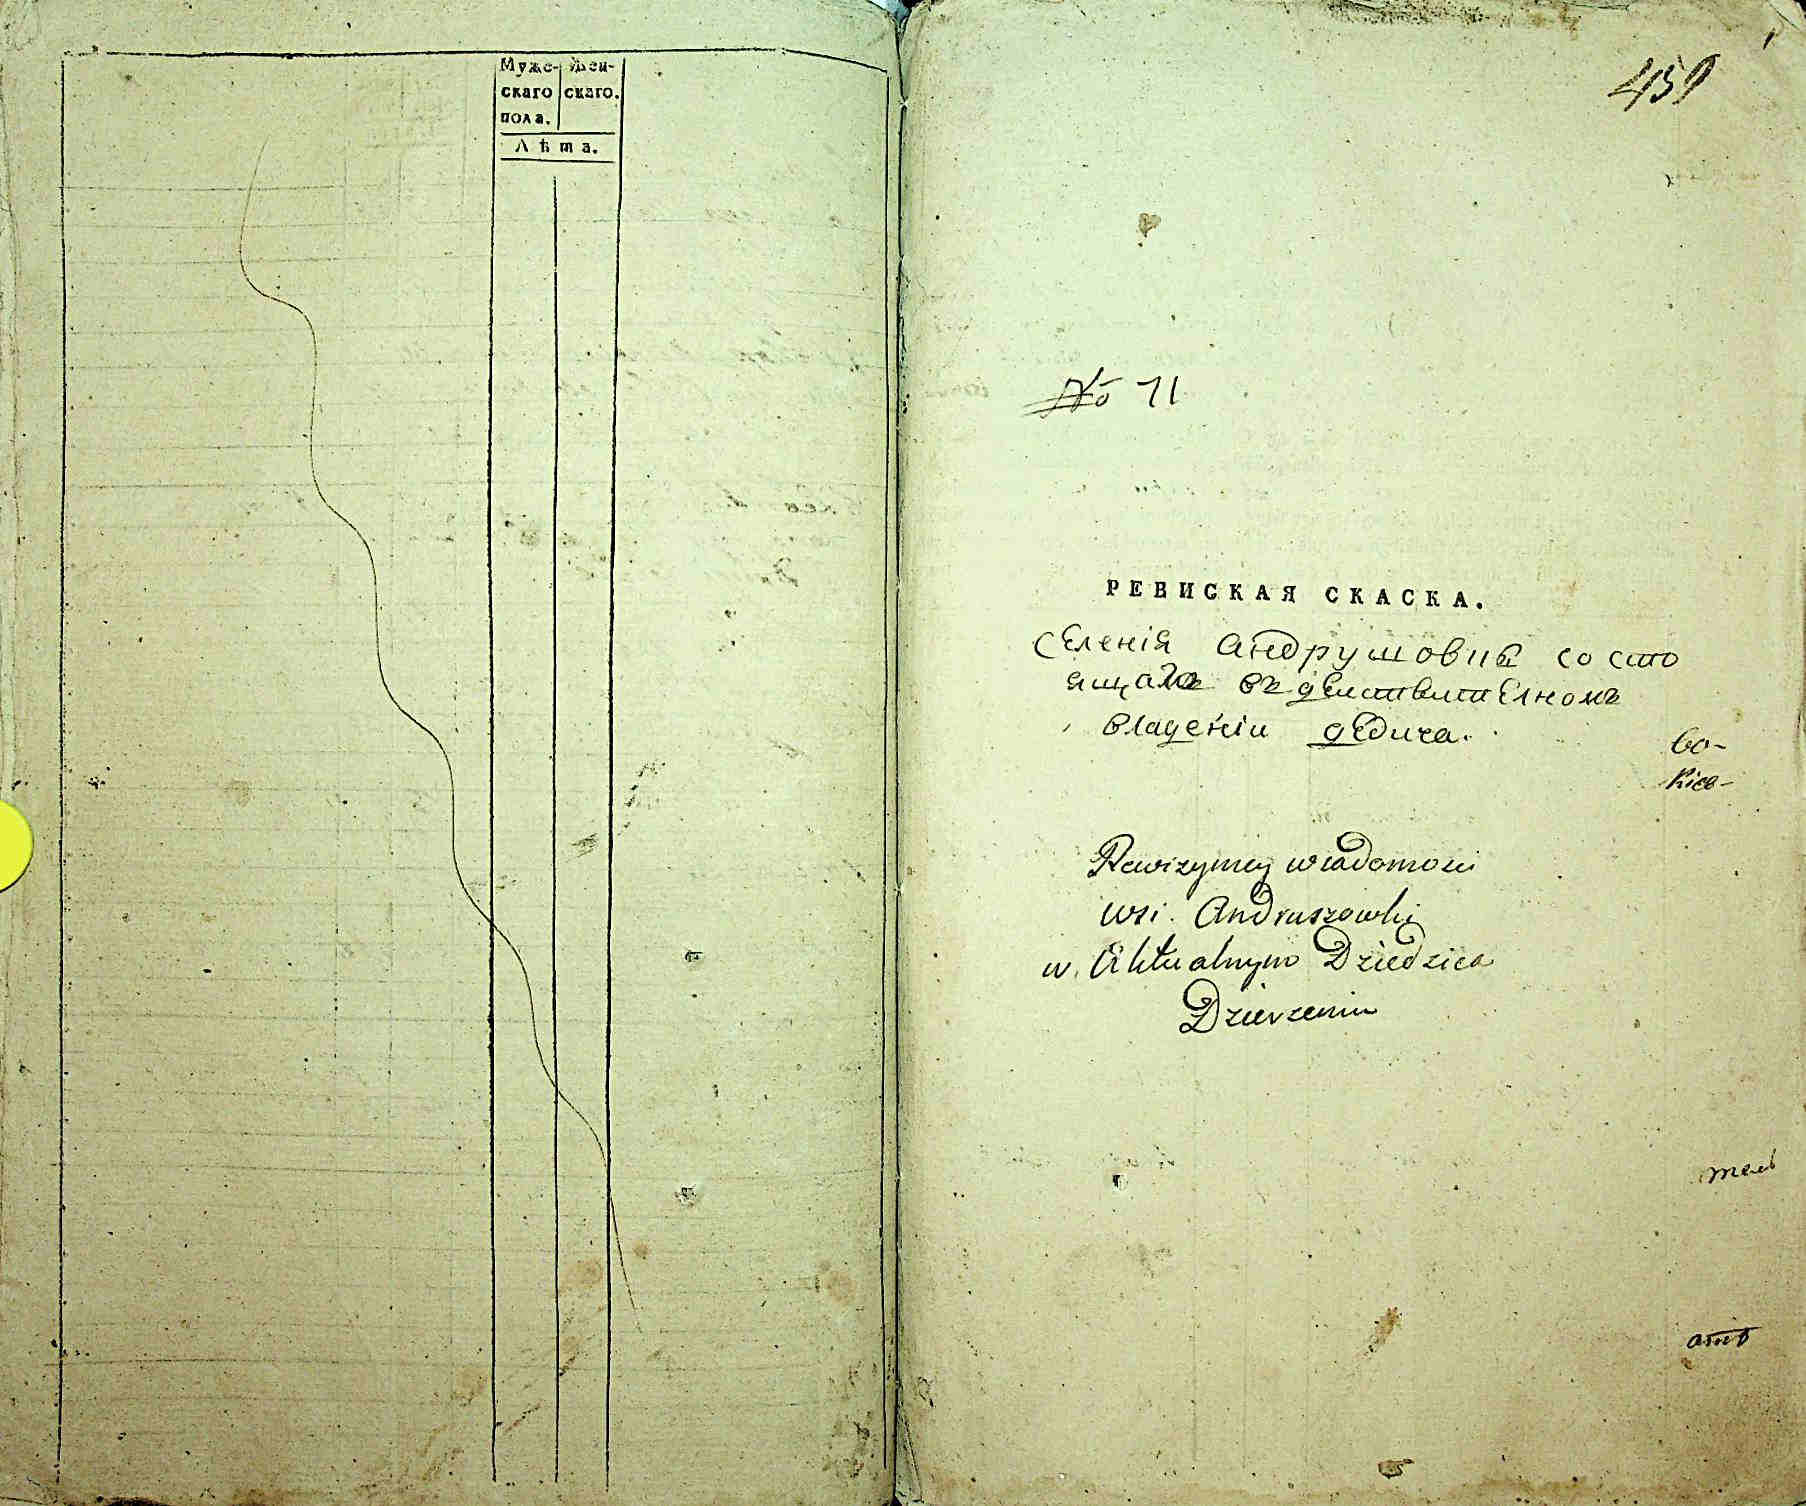 Муже- Жен-
скаго скаго.
пола.
Лѣта.
459
№ 11
РЕВИСКАЯ СКАСКА.
Селенія Андрушовки со сто
ящаго въ действителномъ
владеніи дедича.
во-
кіев-
Rewizyiney wiadomosci
wsi. Andruszowki
w. Aktualnym Dziedzica
Dzierzeniu